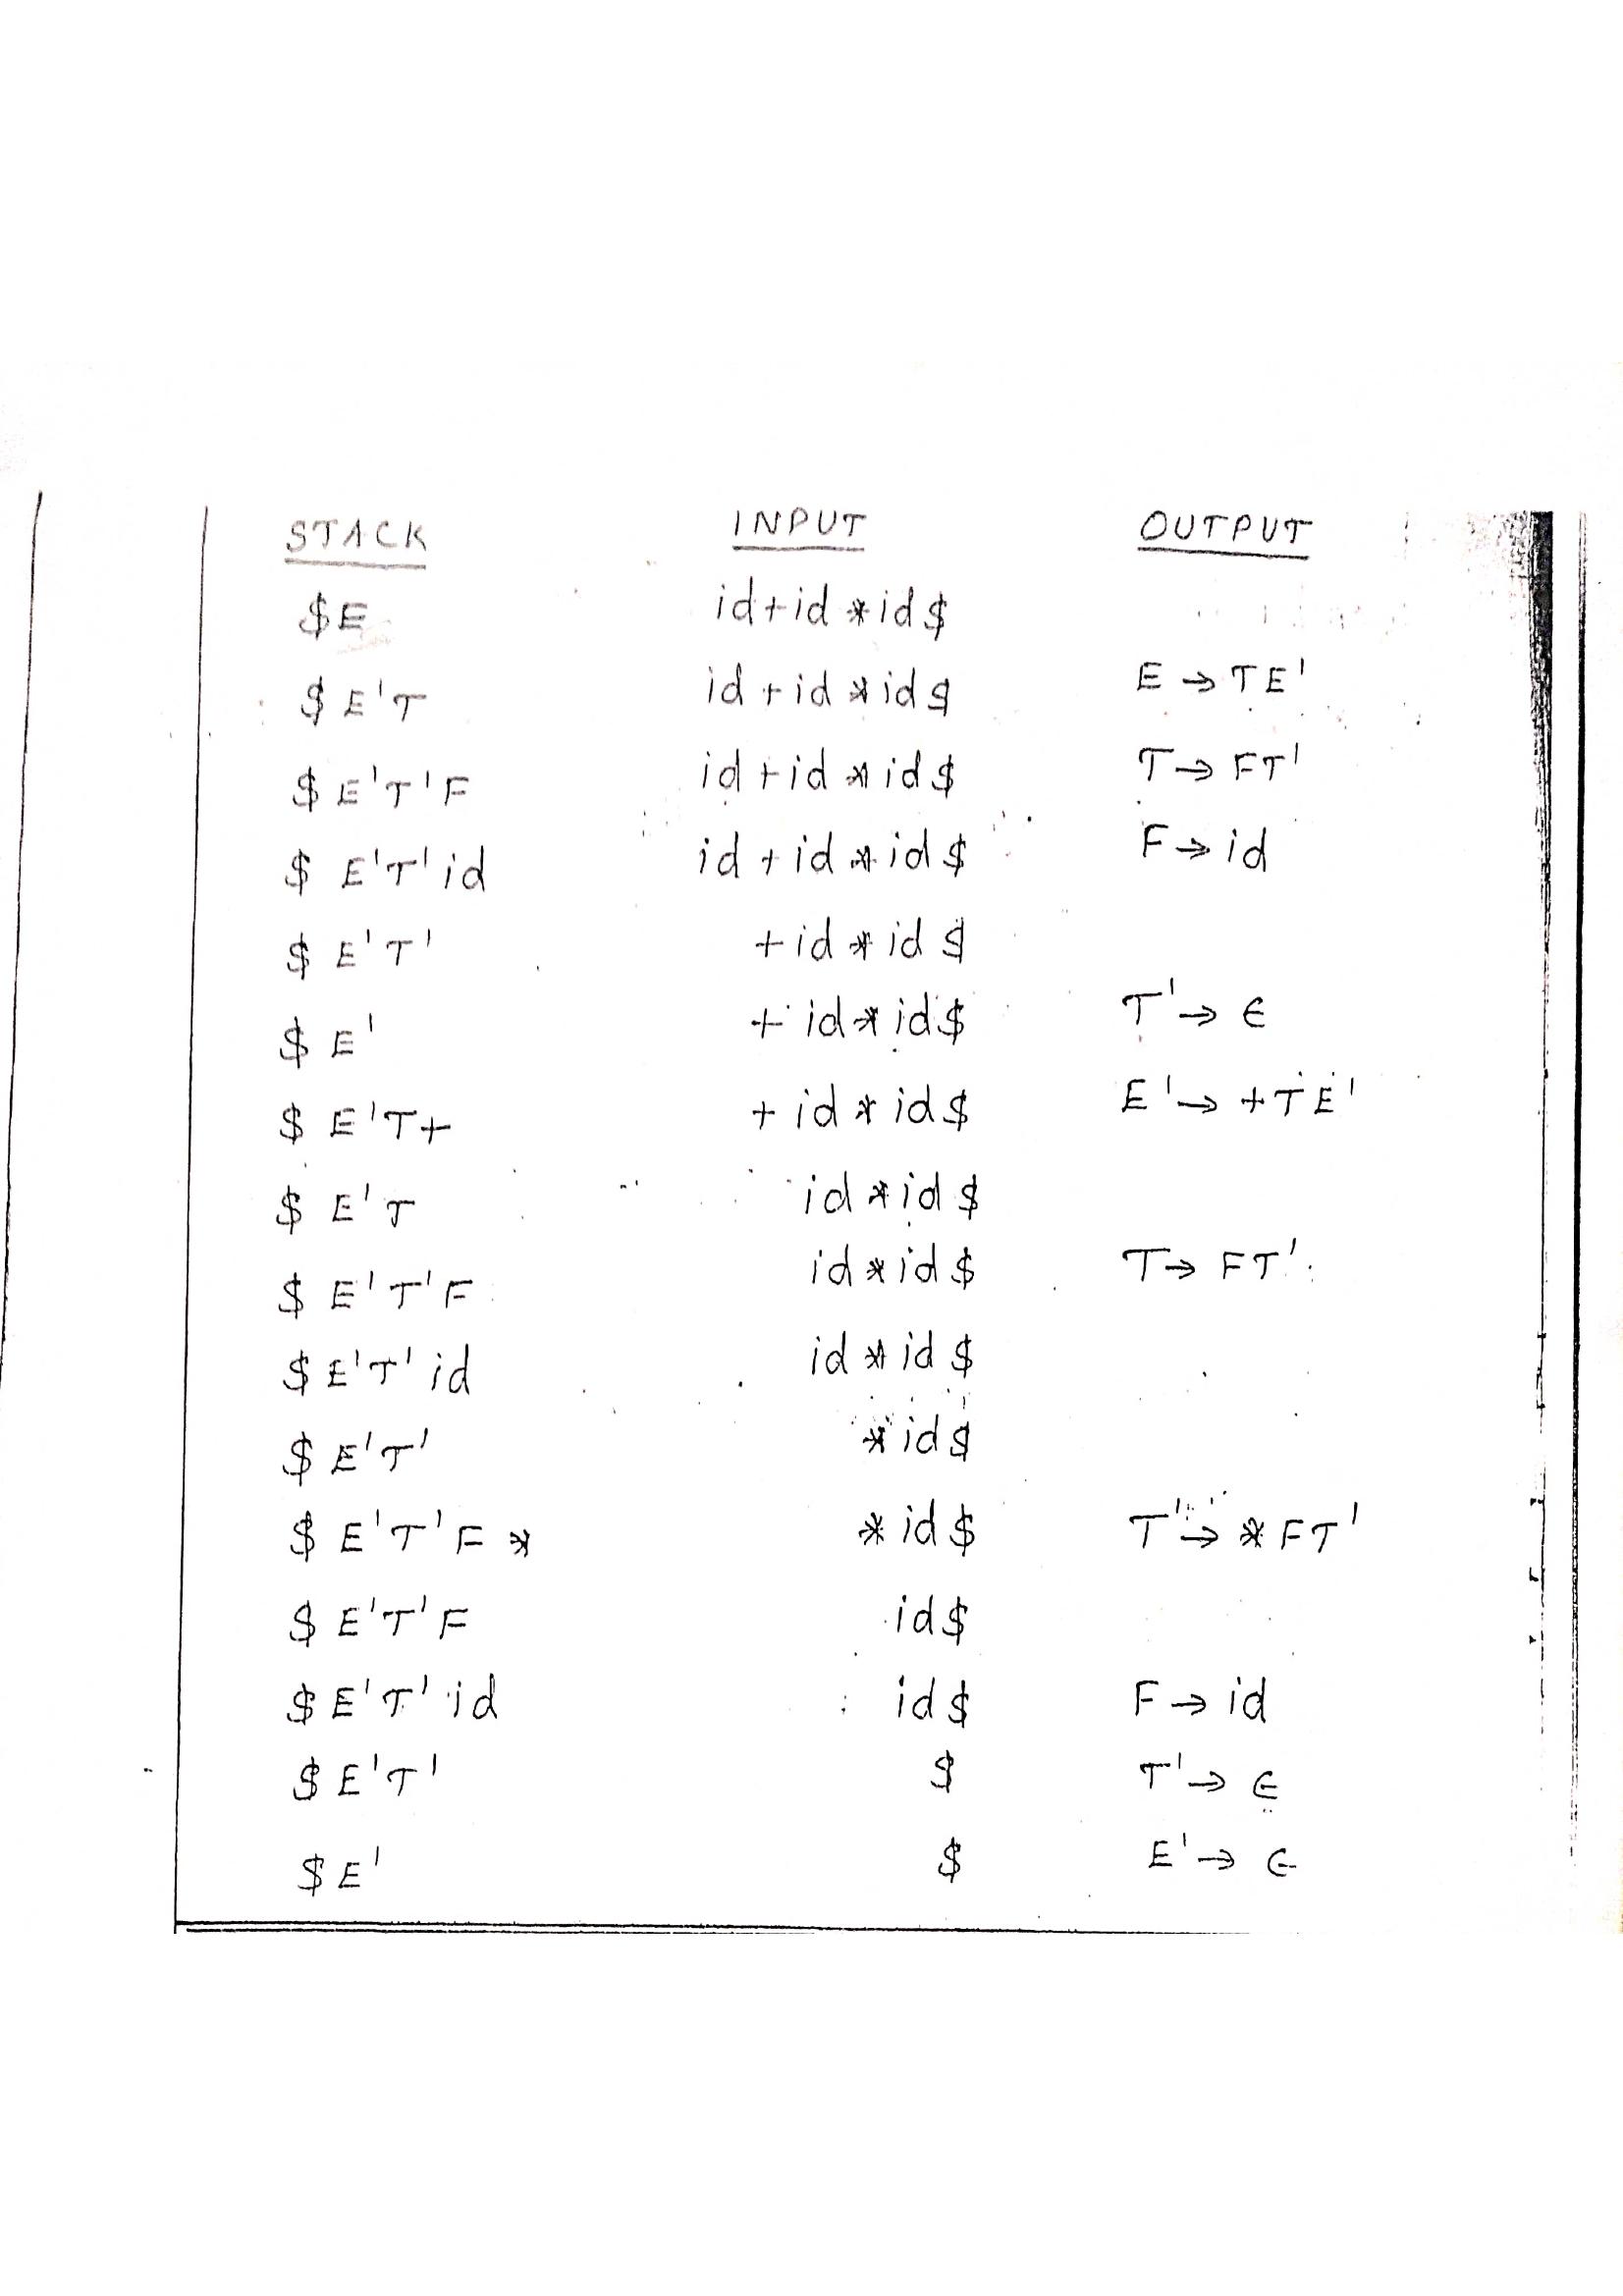 STACK INPUT OUTPUT
$E id+id*id$
$E'T id+id*id$ E→TE'
$E'T'F id+id*id$ T→FT'
$E'T'id id+id*id$ F→id
$E'T' +id*id$
$E' +id*id$ T'→ϵ
$E'T+ +id*id$ E'→+TE'
$E'T id*id$
$E'T'F id*id$ T→FT'
$E'T'id id*id$
$E'T' *id$
$E'T'F* *id$ T'→*FT'
$E'T'F id$
$E'T'id id$ F→id
$E'T' $ T'→ϵ
$E' $ E'→ϵ